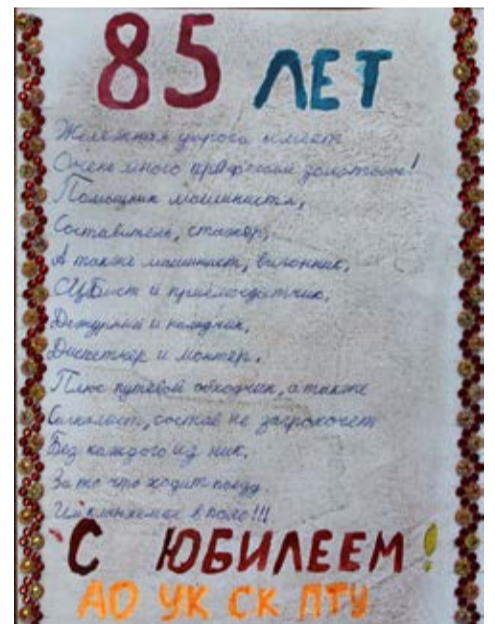 85 ЛЕТ
Железная дорога имеет
Очень много профессий золотых!
Помощник машиниста,
Составитель, стажёр,
А также машинист, вагонник,
СЦБист и приёмосдатчик,
Дежурный и наладчик,
Диспетчер и монтёр.
Плюс путевой обходчик, а также
Сигналист, состав не загрохочет
Без каждого из них.
За то что ходит поезд
Им кланяемся в пояс!!!
С ЮБИЛЕЕМ!
АО УК СК ПТУ